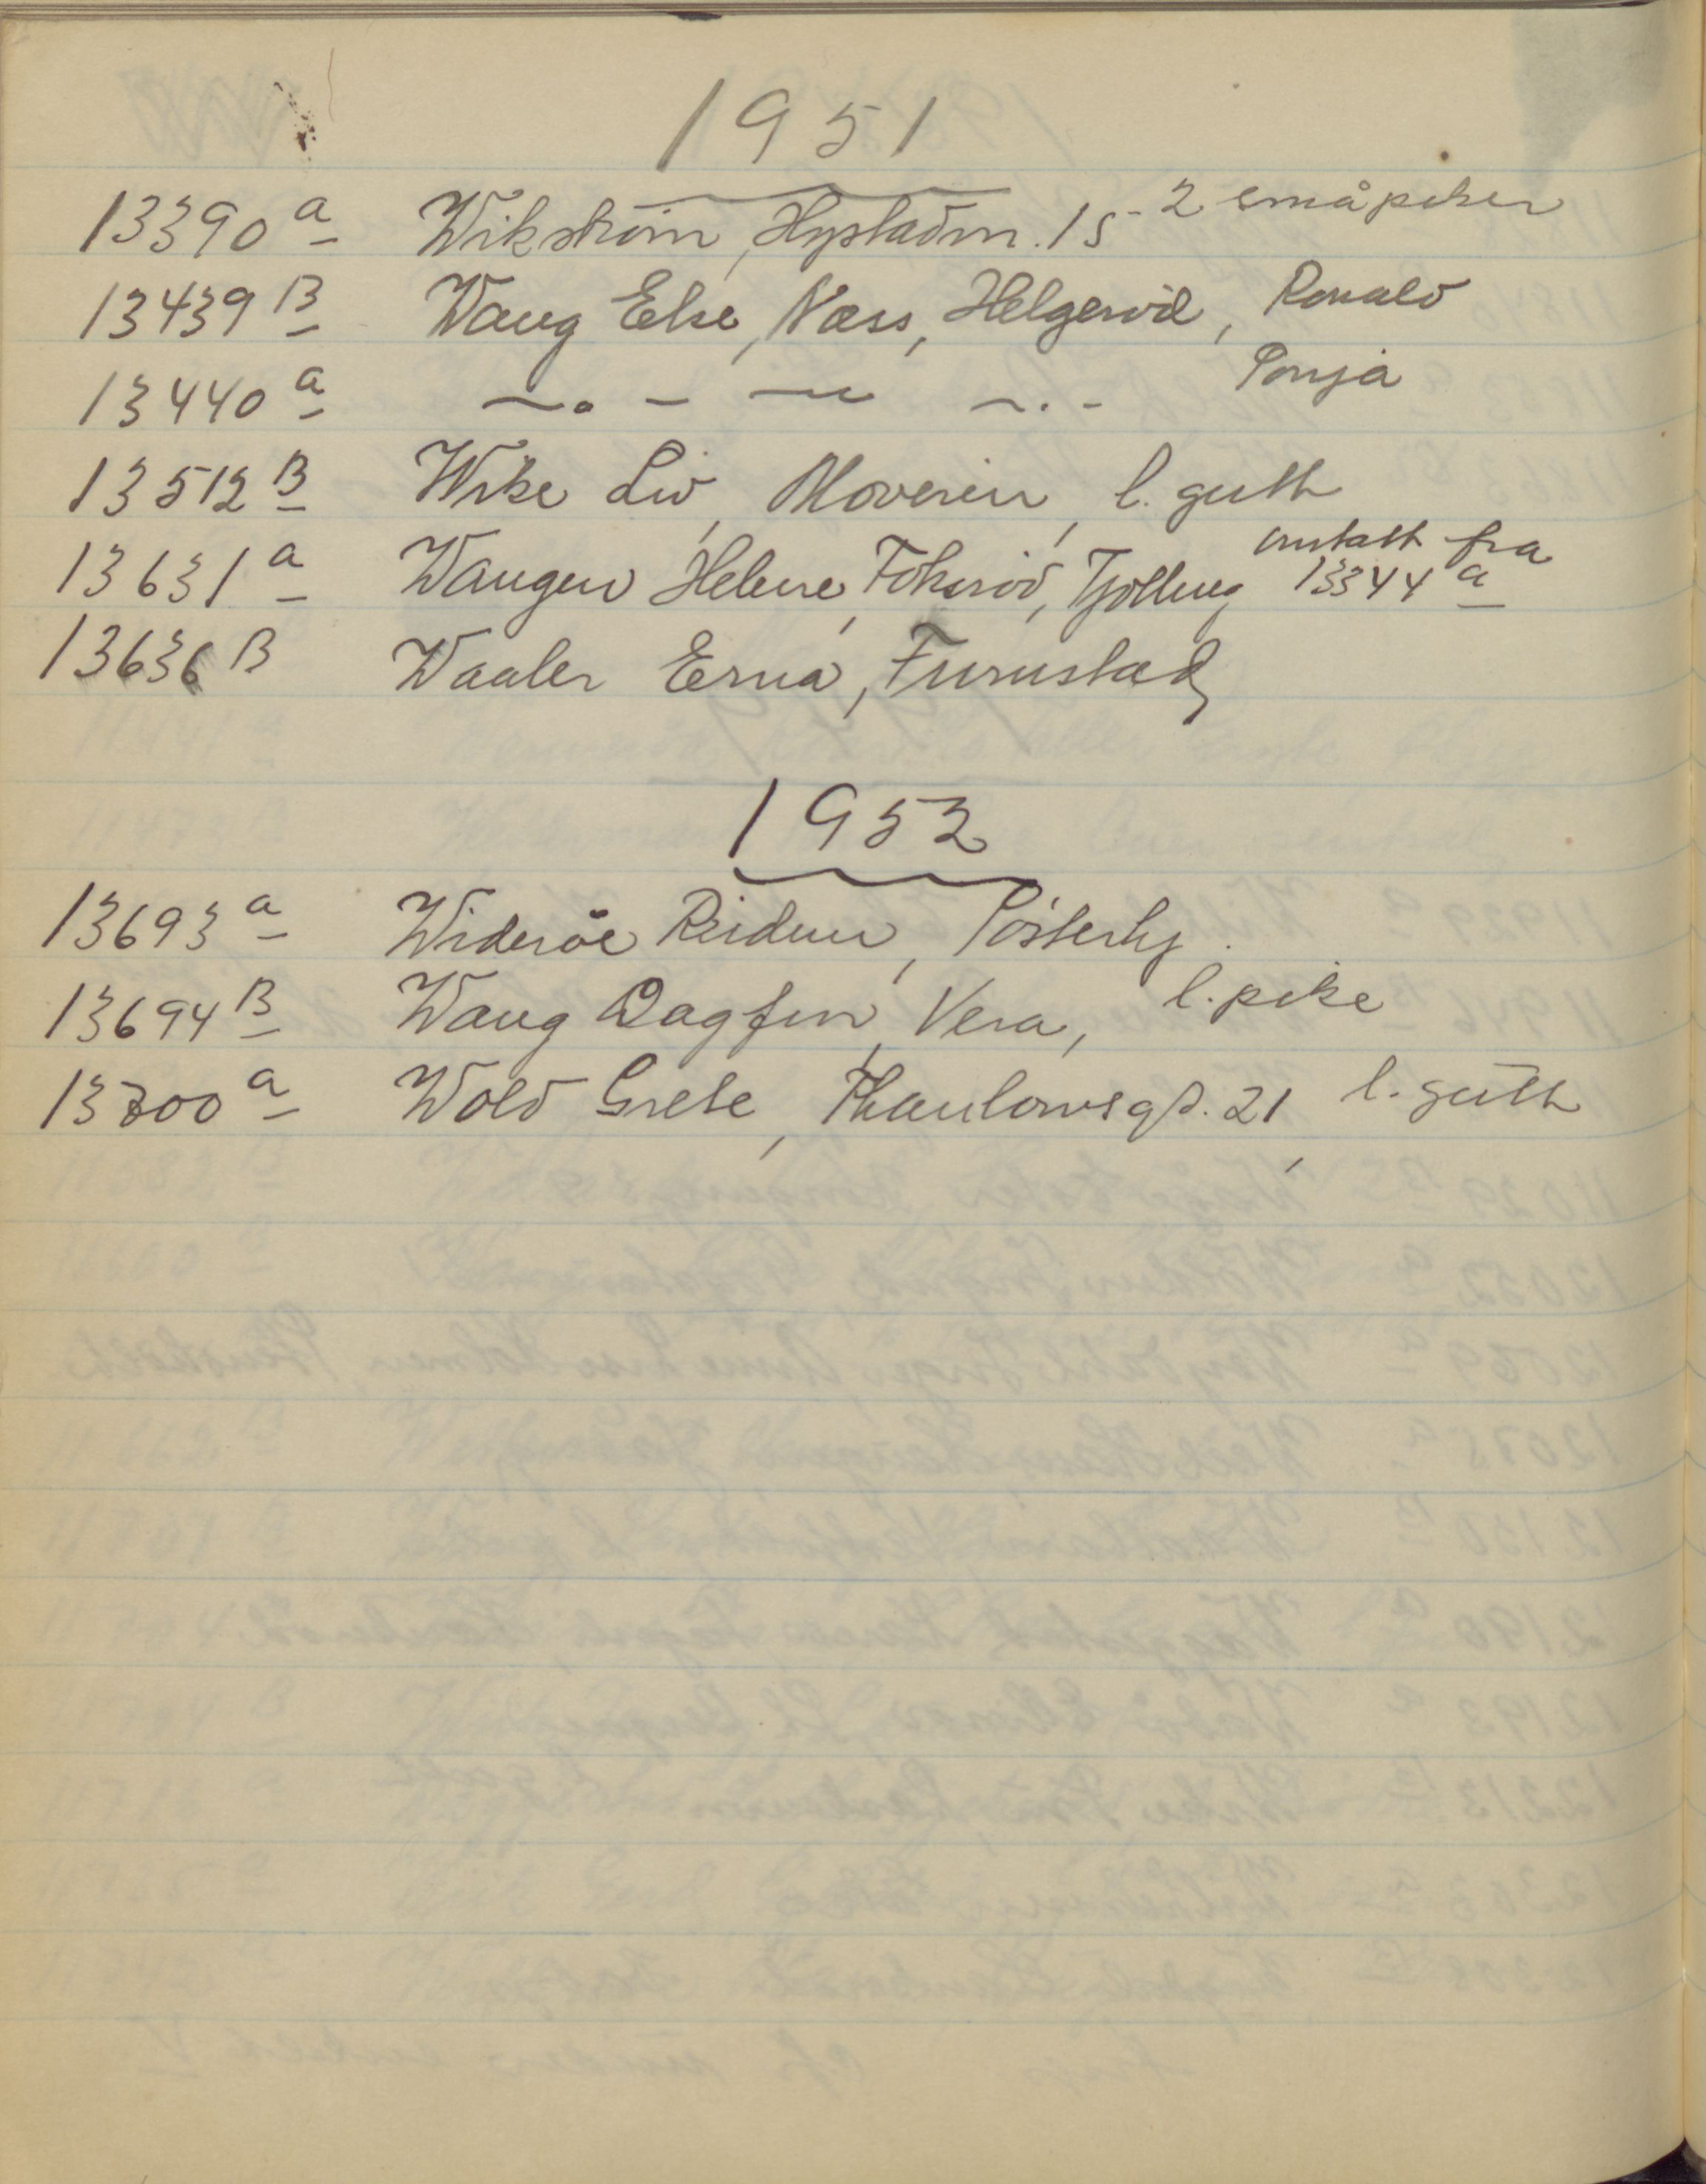 1951
13390 a Wikström, Hystadvn. 15 - 2 småpiker
13439 B Waug Else, Næss, Helgerød, Ronald
13440 a —〃— —〃— Ponja
13512 B Wike Liv, Moveien, l. gutt
13631 a Wangen Helene, Fokserød, Tjølling omtatt fra 13344 a
13636 B Waaler Erna, Furustad
1952
13693 a Widerøe Reidun, Pösterby.
13694 B Waug Dagfin, Vera, l. pike
13700 a Wold Grete, Thaulowsgt. 21, l. gutt